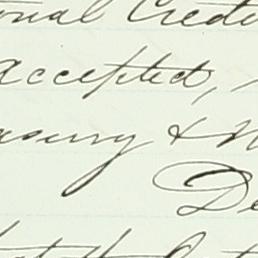 onal Crede
accepted,
asury & N
De